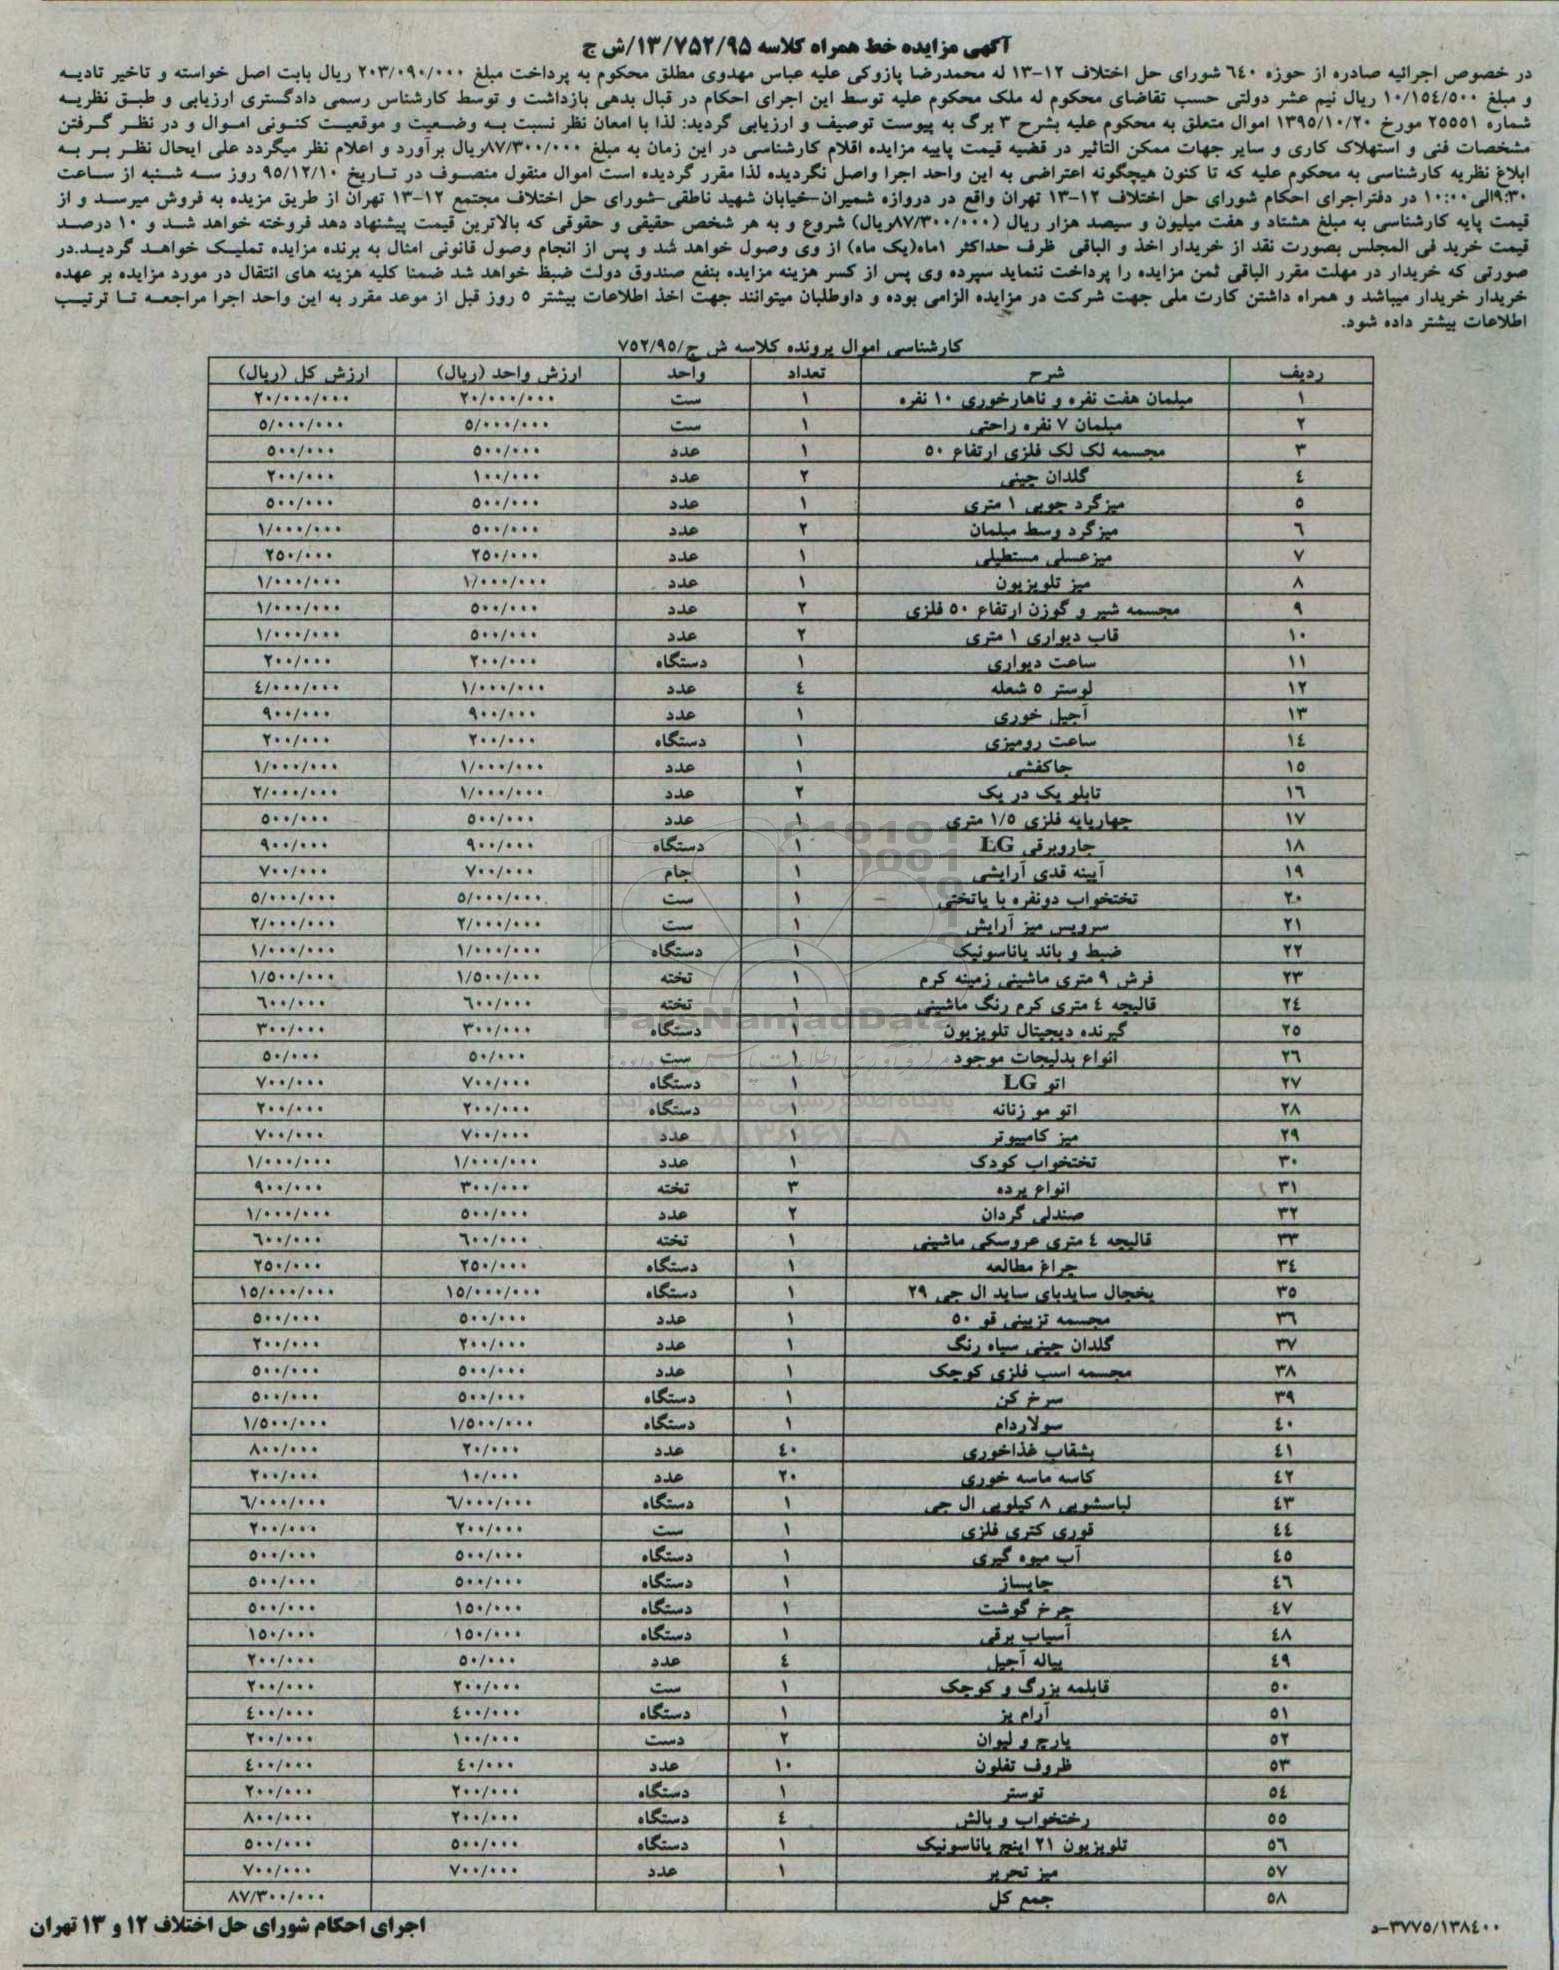 آگهی مزایده خط همراه کلاسه ۱۳/۷۵۲/۹۵/ش ج
در خصوص اجرائیه صادره از حوزه ٦٤۰ شورای حل اختلاف ۱۲-۱۳ له محمدرضا پازوکی علیه عباس مهدوی مطلق محکوم به پرداخت مبلغ ۲۰۳/۰۹۰/۰۰۰ ریال بابت اصل خواسته و تاخیر تادیه
و مبلغ ۱۰/۱۵٤/۵۰۰ ریال نیم عشر دولتی حسب تقاضای محکوم له ملک محکوم علیه توسط این اجرای احکام در قبال بدهی بازداشت و توسط کارشناس رسمی دادگستری ارزیابی و طبق نظریه
شماره ۲۵۵۵۱ مورخ ۱۳۹۵/۱۰/۲۰ اموال متعلق به محکوم علیه بشرح ۳ برگ به پیوست توصیف و ارزیابی گردید: لذا با امعان نظر نسبت به وضعیت و موقعیت کنونی اموال و در نظر گرفتن
مشخصات فنی و استهلاک کاری و سایر جهات ممکن التاثیر در قضیه قیمت پاییه مزایده اقلام کارشناسی در این زمان به مبلغ ۸۷/۳۰۰/۰۰۰ریال برآورد و اعلام نظر میگردد علی ایحال نظر بر به
ابلاغ نظریه کارشناسی به محکوم علیه که تا کنون هیچگونه اعتراضی به این واحد اجرا واصل نگردیده لذا مقرر گردیده است اموال منقول منصوف در تاریخ ۹۵/۱۲/۱۰ روز سه شنبه از ساعت
۹:۳۰الی۱۰:۰۰ در دفتراجرای احکام شورای حل اختلاف ۱۲-۱۳ تهران واقع در دروازه شمیران-خیابان شهید ناطقی-شورای حل اختلاف مجتمع ۱۲-۱۳ تهران از طریق مزیده به فروش میرسد و از
قیمت پایه کارشناسی به مبلغ هشتاد و هفت میلیون و سیصد هزار ریال (۸۷/۳۰۰/۰۰۰ریال) شروع و به هر شخص حقیقی و حقوقی که بالاترین قیمت پیشنهاد دهد فروخته خواهد شد و ۱۰ درصد
قیمت خرید فی المجلس بصورت نقد از خریدار اخذ و الباقی ظرف حداکثر ۱ماه(یک ماه) از وی وصول خواهد شد و پس از انجام وصول قانونی امثال به برنده مزایده تملیک خواهد گردید.در
صورتی که خریدار در مهلت مقرر الباقی ثمن مزایده را پرداخت ننماید سپرده وی پس از کسر هزینه مزایده بنفع صندوق دولت ضبط خواهد شد ضمنا کلیه هزینه های انتقال در مورد مزایده بر عهده
خریدار خریدار میباشد و همراه داشتن کارت ملی جهت شرکت در مزایده الزامی بوده و داوطلبان میتوانند جهت اخذ اطلاعات بیشتر ۵ روز قبل از موعد مقرر به این واحد اجرا مراجعه تا ترتیب
اطلاعات بیشتر داده شود.
کارشناسی اموال پرونده کلاسه ش ج/۷۵۲/۹۵
ردیف شرح تعداد واحد ارزش واحد (ریال) ارزش کل (ریال)
۱ مبلمان هفت نفره و ناهارخوری ۱۰ نفره ۱ ست ۲۰/۰۰۰/۰۰۰ ۲۰/۰۰۰/۰۰۰
۲ مبلمان ۷ نفره راحتی ۱ ست ۵/۰۰۰/۰۰۰ ۵/۰۰۰/۰۰۰
۳ مجسمه لک لک فلزی ارتفاع ۵۰ ۱ عدد ۵۰۰/۰۰۰ ۵۰۰/۰۰۰
٤ گلدان چینی ۲ عدد ۱۰۰/۰۰۰ ۲۰۰/۰۰۰
۵ میزگرد چوبی ۱ متری ۱ عدد ۵۰۰/۰۰۰ ۵۰۰/۰۰۰
٦ میزگرد وسط مبلمان ۲ عدد ۵۰۰/۰۰۰ ۱/۰۰۰/۰۰۰
۷ میزعسلی مستطیلی ۱ عدد ۲۵۰/۰۰۰ ۲۵۰/۰۰۰
۸ میز تلویزیون ۱ عدد ۱/۰۰۰/۰۰۰ ۱/۰۰۰/۰۰۰
۹ مجسمه شیر و گوزن ارتفاع ۵۰ فلزی ۲ عدد ۵۰۰/۰۰۰ ۱/۰۰۰/۰۰۰
۱۰ قاب دیواری ۱ متری ۲ عدد ۵۰۰/۰۰۰ ۱/۰۰۰/۰۰۰
۱۱ ساعت دیواری ۱ دستگاه ۲۰۰/۰۰۰ ۲۰۰/۰۰۰
۱۲ لوستر ۵ شعله ٤ عدد ۱/۰۰۰/۰۰۰ ٤/۰۰۰/۰۰۰
۱۳ آجیل خوری ۱ عدد ۹۰۰/۰۰۰ ۹۰۰/۰۰۰
۱٤ ساعت رومیزی ۱ دستگاه ۲۰۰/۰۰۰ ۲۰۰/۰۰۰
۱۵ جاکفشی ۱ عدد ۱/۰۰۰/۰۰۰ ۱/۰۰۰/۰۰۰
۱٦ تابلو یک در یک ۲ عدد ۱/۰۰۰/۰۰۰ ۲/۰۰۰/۰۰۰
۱۷ چهارپایه فلزی ۱/۵ متری ۱ عدد ۵۰۰/۰۰۰ ۵۰۰/۰۰۰
۱۸ جاروبرقی LG ۱ دستگاه ۹۰۰/۰۰۰ ۹۰۰/۰۰۰
۱۹ آیینه قدی آرایشی ۱ جام ۷۰۰/۰۰۰ ۷۰۰/۰۰۰
۲۰ تختخواب دونفره با پاتختی ۱ ست ۵/۰۰۰/۰۰۰ ۵/۰۰۰/۰۰۰
۲۱ سرویس میز آرایش ۱ ست ۲/۰۰۰/۰۰۰ ۲/۰۰۰/۰۰۰
۲۲ ضبط و باند پاناسونیک ۱ دستگاه ۱/۰۰۰/۰۰۰ ۱/۰۰۰/۰۰۰
۲۳ فرش ۹ متری ماشینی زمینه کرم ۱ تخته ۱/۵۰۰/۰۰۰ ۱/۵۰۰/۰۰۰
۲٤ قالیچه ٤ متری کرم رنگ ماشینی ۱ تخته ٦۰۰/۰۰۰ ٦۰۰/۰۰۰
۲۵ گیرنده دیجیتال تلویزیون ۱ دستگاه ۳۰۰/۰۰۰ ۳۰۰/۰۰۰
۲٦ انواع بدلیجات موجود ۱ ست ۵۰/۰۰۰ ۵۰/۰۰۰
۲۷ اتو LG ۱ دستگاه ۷۰۰/۰۰۰ ۷۰۰/۰۰۰
۲۸ اتو مو زنانه ۱ دستگاه ۲۰۰/۰۰۰ ۲۰۰/۰۰۰
۲۹ میز کامپیوتر ۱ عدد ۷۰۰/۰۰۰ ۷۰۰/۰۰۰
۳۰ تختخواب کودک ۱ عدد ۱/۰۰۰/۰۰۰ ۱/۰۰۰/۰۰۰
۳۱ انواع پرده ۳ تخته ۳۰۰/۰۰۰ ۹۰۰/۰۰۰
۳۲ صندلی گردان ۲ عدد ۵۰۰/۰۰۰ ۱/۰۰۰/۰۰۰
۳۳ قالیچه ٤ متری عروسکی ماشینی ۱ تخته ٦۰۰/۰۰۰ ٦۰۰/۰۰۰
۳٤ چراغ مطالعه ۱ دستگاه ۲۵۰/۰۰۰ ۲۵۰/۰۰۰
۳۵ یخچال سایدبای ساید ال جی ۲۹ ۱ دستگاه ۱۵/۰۰۰/۰۰۰ ۱۵/۰۰۰/۰۰۰
۳٦ مجسمه تزیینی قو ۵۰ ۱ عدد ۵۰۰/۰۰۰ ۵۰۰/۰۰۰
۳۷ گلدان چینی سیاه رنگ ۱ عدد ۲۰۰/۰۰۰ ۲۰۰/۰۰۰
۳۸ مجسمه اسب فلزی کوچک ۱ عدد ۵۰۰/۰۰۰ ۵۰۰/۰۰۰
۳۹ سرخ کن ۱ دستگاه ۵۰۰/۰۰۰ ۵۰۰/۰۰۰
٤۰ سولاردام ۱ دستگاه ۱/۵۰۰/۰۰۰ ۱/۵۰۰/۰۰۰
٤۱ بشقاب غذاخوری ٤۰ عدد ۲۰/۰۰۰ ۸۰۰/۰۰۰
٤۲ کاسه ماسه خوری ۲۰ عدد ۱۰/۰۰۰ ۲۰۰/۰۰۰
٤۳ لباسشویی ۸ کیلویی ال جی ۱ دستگاه ٦/۰۰۰/۰۰۰ ٦/۰۰۰/۰۰۰
٤٤ قوری کتری فلزی ۱ ست ۲۰۰/۰۰۰ ۲۰۰/۰۰۰
٤۵ آب میوه گیری ۱ دستگاه ۵۰۰/۰۰۰ ۵۰۰/۰۰۰
٤٦ چایساز ۱ دستگاه ۵۰۰/۰۰۰ ۵۰۰/۰۰۰
٤۷ چرخ گوشت ۱ دستگاه ۱۵۰/۰۰۰ ۵۰۰/۰۰۰
٤۸ آسیاب برقی ۱ دستگاه ۱۵۰/۰۰۰ ۱۵۰/۰۰۰
٤۹ پیاله آجیل ٤ عدد ۵۰/۰۰۰ ۲۰۰/۰۰۰
۵۰ قابلمه بزرگ و کوچک ۱ ست ۲۰۰/۰۰۰ ۲۰۰/۰۰۰
۵۱ آرام پز ۱ دستگاه ٤۰۰/۰۰۰ ٤۰۰/۰۰۰
۵۲ پارچ و لیوان ۲ دست ۱۰۰/۰۰۰ ۲۰۰/۰۰۰
۵۳ ظروف تفلون ۱۰ عدد ٤۰/۰۰۰ ٤۰۰/۰۰۰
۵٤ توستر ۱ دستگاه ۲۰۰/۰۰۰ ۲۰۰/۰۰۰
۵۵ رختخواب و بالش ٤ دستگاه ۲۰۰/۰۰۰ ۸۰۰/۰۰۰
۵٦ تلویزیون ۲۱ اینچ پاناسونیک ۱ دستگاه ۵۰۰/۰۰۰ ۵۰۰/۰۰۰
۵۷ میز تحریر ۱ عدد ۷۰۰/۰۰۰ ۷۰۰/۰۰۰
۵۸ جمع کل ۸۷/۳۰۰/۰۰۰
۳۷۷۵/۱۳۸٤۰۰-د
اجرای احکام شورای حل اختلاف ۱۲ و ۱۳ تهران
ParsNamadData
پایگاه اطلاع رسانی مناقصه و مزایده